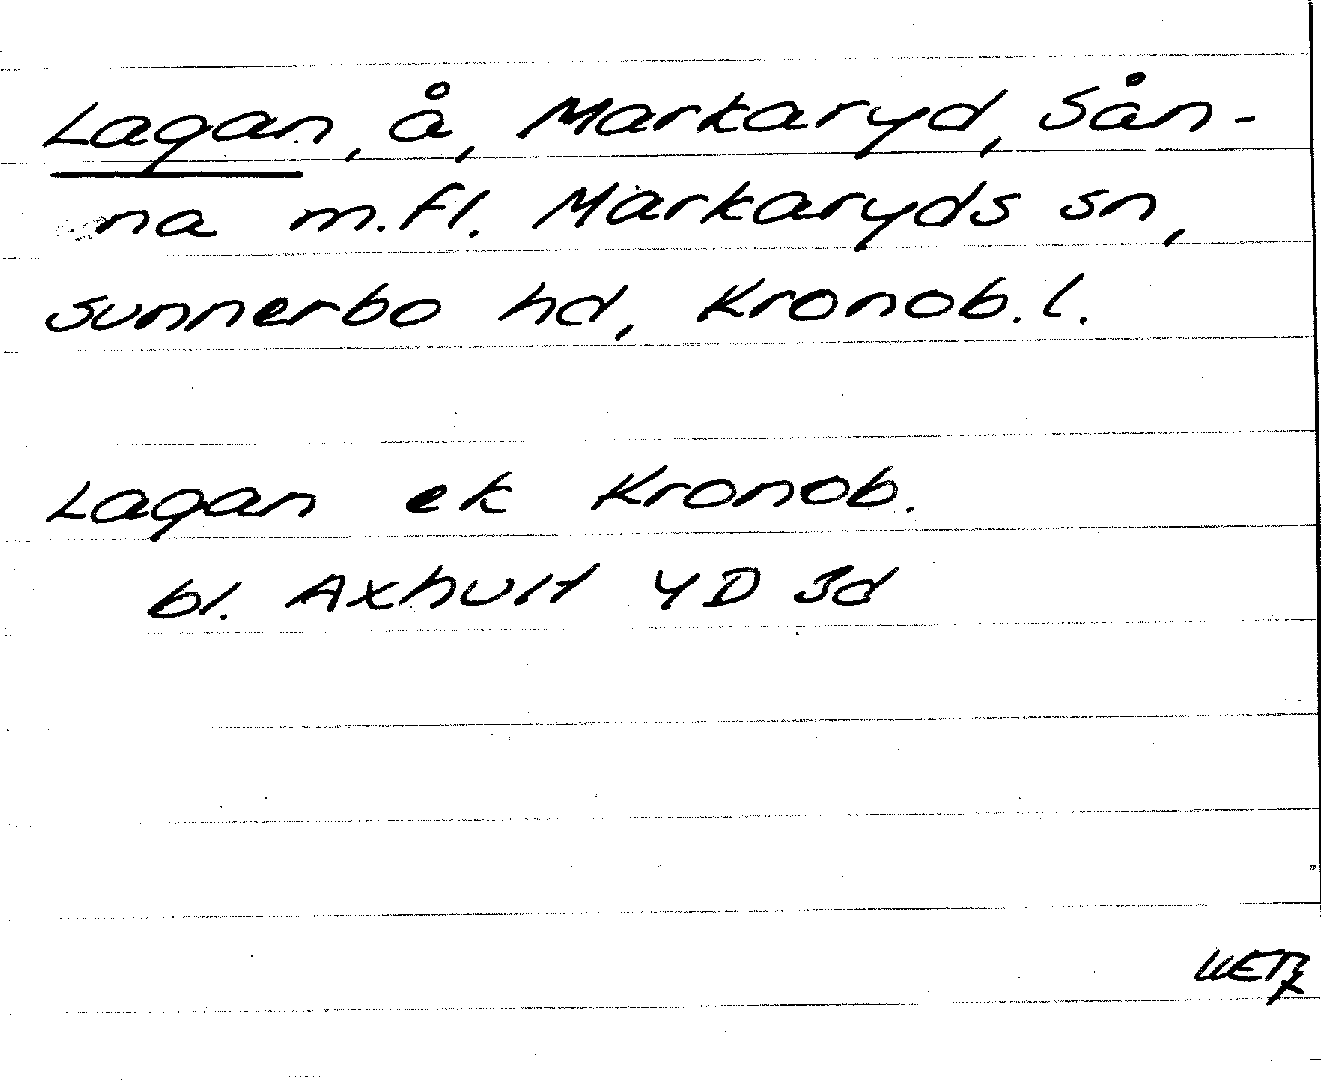 Lagan, å, Markaryd, Sån-
na m.fl. Markaryds sn,
Sunnerbo hd, Kronob. l.
Lagan ek Kronob.
bl. Axhult 4D 3d